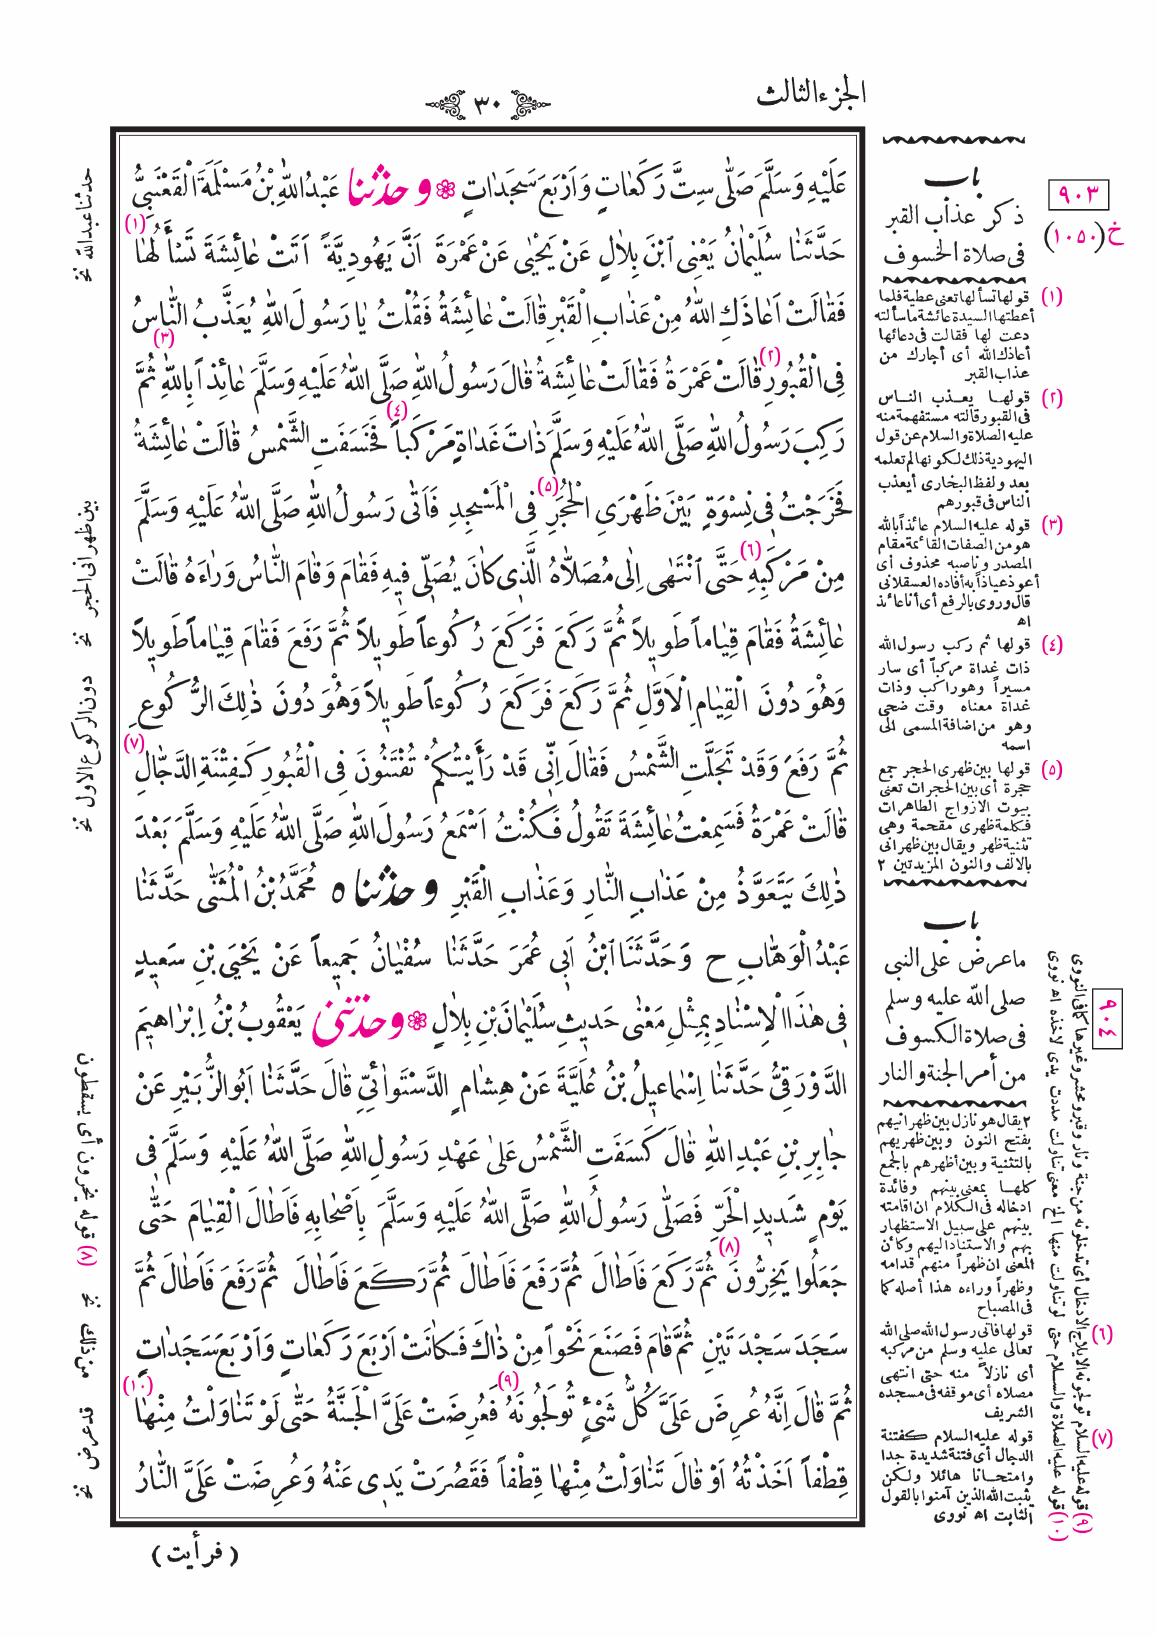 الجزء الثالث
٣٠
عَلَيْهِ وَسَلَّمَ صَلَّى سِتَّ رَكَعَاتٍ وَاَرْبَعَ سَجَدَاتٍ ❁ وحدثنا عَبْدُ اللهِ بْنُ مَسْلَمَةَ الْقَعْنَبِيُّ
حَدَّثَنَا سُلَيْمَانُ يَعْنِى ابْنَ بِلَالٍ عَنْ يَحْيٰى عَنْ عَمْرَةَ اَنَّ يَهُودِيَّةً اَتَتْ عَائِشَةَ تَسْأَلُهَا (١)
فَقَالَتْ اَعَاذَكِ اللهُ مِنْ عَذَابِ الْقَبْرِ قَالَتْ عَائِشَةُ فَقُلْتُ يَا رَسُولَ اللهِ يُعَذَّبُ النَّاسُ
فِى الْقُبُورِ (٢) قَالَتْ عَمْرَةُ فَقَالَتْ عَائِشَةُ قَالَ رَسُولُ اللهِ صَلَّى اللهُ عَلَيْهِ وَسَلَّمَ عَائِذاً (٣) بِاللهِ ثُمَّ
رَكِبَ رَسُولُ اللهِ صَلَّى اللهُ عَلَيْهِ وَسَلَّمَ ذَاتَ غَدَاةٍ مَرْكَباً (٤) فَخَسَفَتِ الشَّمْسُ قَالَتْ عَائِشَةُ
فَخَرَجْتُ فِى نِسْوَةٍ بَيْنَ ظَهْرَىِ الْحُجَرِ (٥) فِى الْمَسْجِدِ فَاَتٰى رَسُولُ اللهِ صَلَّى اللهُ عَلَيْهِ وَسَلَّمَ
مِنْ مَرْكَبِهِ (٦) حَتَّى انْتَهٰى اِلٰى مُصَلَّاهُ الَّذِى كَانَ يُصَلِّى فِيهِ فَقَامَ وَقَامَ النَّاسُ وَرَاءَهُ قَالَتْ
عَائِشَةُ فَقَامَ قِيَاماً طَوِيلاً ثُمَّ رَكَعَ فَرَكَعَ رُكُوعاً طَوِيلاً ثُمَّ رَفَعَ فَقَامَ قِيَاماً طَوِيلاً
وَهُوَ دُونَ الْقِيَامِ الْاَوَّلِ ثُمَّ رَكَعَ فَرَكَعَ رُكُوعاً طَوِيلاً وَهُوَ دُونَ ذٰلِكَ الرُّكُوعِ
ثُمَّ رَفَعَ وَقَدْ تَجَلَّتِ الشَّمْسُ فَقَالَ اِنِّى قَدْ رَأَيْتُكُمْ تُفْتَنُونَ فِى الْقُبُورِ كَفِتْنَةِ الدَّجَّالِ (٧)
قَالَتْ عَمْرَةُ فَسَمِعْتُ عَائِشَةَ تَقُولُ فَكُنْتُ اَسْمَعُ رَسُولَ اللهِ صَلَّى اللهُ عَلَيْهِ وَسَلَّمَ بَعْدَ
ذٰلِكَ يَتَعَوَّذُ مِنْ عَذَابِ النَّارِ وَعَذَابِ الْقَبْرِ وحدثنا ه مُحَمَّدُ بْنُ الْمُثَنّٰى حَدَّثَنَا
عَبْدُ الْوَهَّابِ ح وَحَدَّثَنَا ابْنُ اَبِى عُمَرَ حَدَّثَنَا سُفْيَانُ جَمِيعاً عَنْ يَحْيَى بْنِ سَعِيدٍ
فِى هٰذَا الْاِسْنَادِ بِمِثْلِ مَعْنٰى حَدِيثِ سُلَيْمَانَ بْنِ بِلَالٍ ❁ وحدثنى يَعْقُوبُ بْنُ اِبْرَاهِيمَ
الدَّوْرَقِىُّ حَدَّثَنَا اِسْمَاعِيلُ بْنُ عُلَيَّةَ عَنْ هِشَامٍ الدَّسْتَوَائِىِّ قَالَ حَدَّثَنَا اَبُو الزُّبَيْرِ عَنْ
جَابِرِ بْنِ عَبْدِ اللهِ قَالَ كَسَفَتِ الشَّمْسُ عَلٰى عَهْدِ رَسُولِ اللهِ صَلَّى اللهُ عَلَيْهِ وَسَلَّمَ فِى
يَوْمٍ شَدِيدِ الْحَرِّ فَصَلّٰى رَسُولُ اللهِ صَلَّى اللهُ عَلَيْهِ وَسَلَّمَ بِاَصْحَابِهِ فَاَطَالَ الْقِيَامَ حَتّٰى
جَعَلُوا يَخِرُّونَ (٨) ثُمَّ رَكَعَ فَاَطَالَ ثُمَّ رَفَعَ فَاَطَالَ ثُمَّ رَكَعَ فَاَطَالَ ثُمَّ رَفَعَ فَاَطَالَ ثُمَّ
سَجَدَ سَجْدَتَيْنِ ثُمَّ قَامَ فَصَنَعَ نَحْواً مِنْ ذَاكَ فَكَانَتْ اَرْبَعَ رَكَعَاتٍ وَاَرْبَعَ سَجَدَاتٍ
ثُمَّ قَالَ اِنَّهُ عُرِضَ عَلَىَّ كُلُّ شَىْءٍ تُولَجُونَهُ (٩) فَعُرِضَتْ عَلَىَّ الْجَنَّةُ حَتّٰى لَوْ تَنَاوَلْتُ مِنْهَا (١٠)
قِطْفاً اَخَذْتُهُ اَوْ قَالَ تَنَاوَلْتُ مِنْهَا قِطْفاً فَقَصُرَتْ يَدِى عَنْهُ وَعُرِضَتْ عَلَىَّ النَّارُ
( فرأيت )
٩٠٣
خ (١٠٥٠)
باب
ذكر عذاب القبر
فى صلاة الخسوف
(١) قولها تسألها تعنى عطية فلما
أعطتها السيدة عائشة ماسألته
دعت لها فقالت فى دعائها
أعاذك الله أى أجارك من
عذاب القبر
(٢) قولها يعذب الناس
فى القبور قالته مستفهمة منه
عليه الصلاة والسلام عن قول
اليهودية ذلك لكونها لم تعلمه
بعد ولفظ البخارى أيعذب
الناس فى قبورهم
(٣) قوله عليه السلام عائذاً بالله
هو من الصفات القائمة مقام
المصدر وناصبه محذوف أى
أعوذ عياذاً به أفاده العسقلانى
قال وروى بالرفع أى أنا عائذ
اه
(٤) قولها ثم ركب رسول الله
ذات غداة مركباً أى سار
مسيراً وهو راكب وذات
غداة معناه وقت ضحى
وهو من اضافة المسمى الى
اسمه
(٥) قولها بين ظهرى الحجر جمع
حجرة أى بين الحجرات تعنى
بيوت الازواج الطاهرات
فكلمة ظهرى مقحمة وهى
تثنية ظهر ويقال بين ظهرانى
بالالف والنون المزيدتين ٢
٩٠٤
باب
ماعرض على النبى
صلى الله عليه وسلم
فى صلاة الكسوف
من أمر الجنة والنار
٢ يقال هو نازل بين ظهرانيهم
بفتح النون وبين ظهريهم
بالتثنية وبين أظهرهم بالجمع
كلها بمعنى بينهم وفائدة
ادخاله فى الكلام ان اقامته
بينهم على سبيل الاستظهار
بهم والاستناد اليهم وكان
المعنى ان ظهراً منهم قدامه
وظهراً وراءه هذا أصله كما
فى المصباح
(٦) قولها فاتى رسول الله صلى الله
تعالى عليه وسلم من مركبه
أى نازلاً منه حتى انتهى
مصلاه أى موقفه فى مسجده
الشريف
(٧) قوله عليه السلام كفتنة
الدجال أى فتنة شديدة جدا
وامتحانا هائلا ولكن
يثبت الله الذين آمنوا بالقول
الثابت اه نووى
(٩) قوله عليه السلام تولجونه الايلاج الادخال أى تدخلونه من جنة ونار وقبر ومحشر وغيرها كما فى النووى
(١٠) قوله عليه الصلاة والسلام حتى لو تناولت منها الخ معنى تناولت مددت يدى لاخذه اه نووى
حدثنا عبدالله نخ
بين ظهرانى الحجر نخ
دون الركوع الاول نخ
(٧) قوله يخرون أى يسقطون
من ذلك نخ
قد عرض نخ